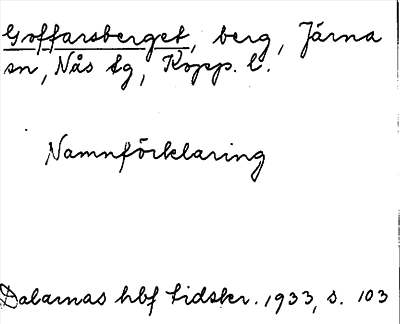 Goffarsberget, berg, Järna
sn, Nås tg, Kopp. l.
Namnförklaring
Dalarnas hbf tidskr. 1933, s. 103